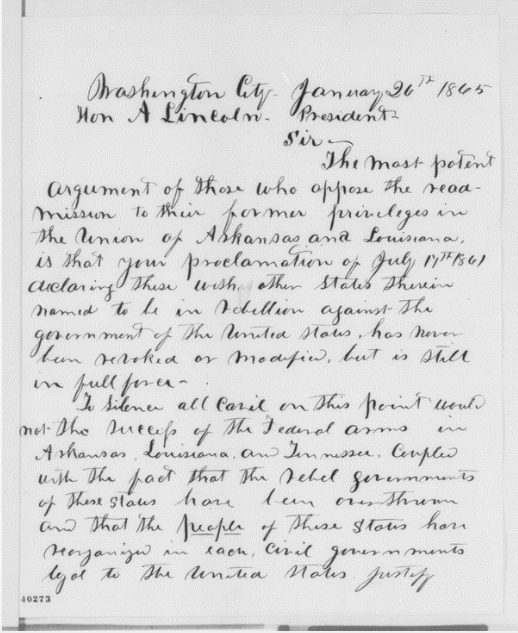 Washington City - January 26th 1865
Hon A Lincoln - President -
Sir -
The most potent
argument of those who oppose the read-
mission to their former privileges in
the Union of Arkansas and Louisiana,
is that your proclamation of July 17th 1861
declaring these with other States therein
named to be in rebellion against the
government of the United States, has never
been revoked or modified, but is still
in full force -
To Silence all Cavil on this point would
not the success of the Federal arms in
Arkansas, Louisiana, and Tennessee, Coupled
with the fact that the rebel governments
of these States have been overthrown
and that the people of these States have
reorganized in each, Civil governments
loyal to the United States, justify
40273